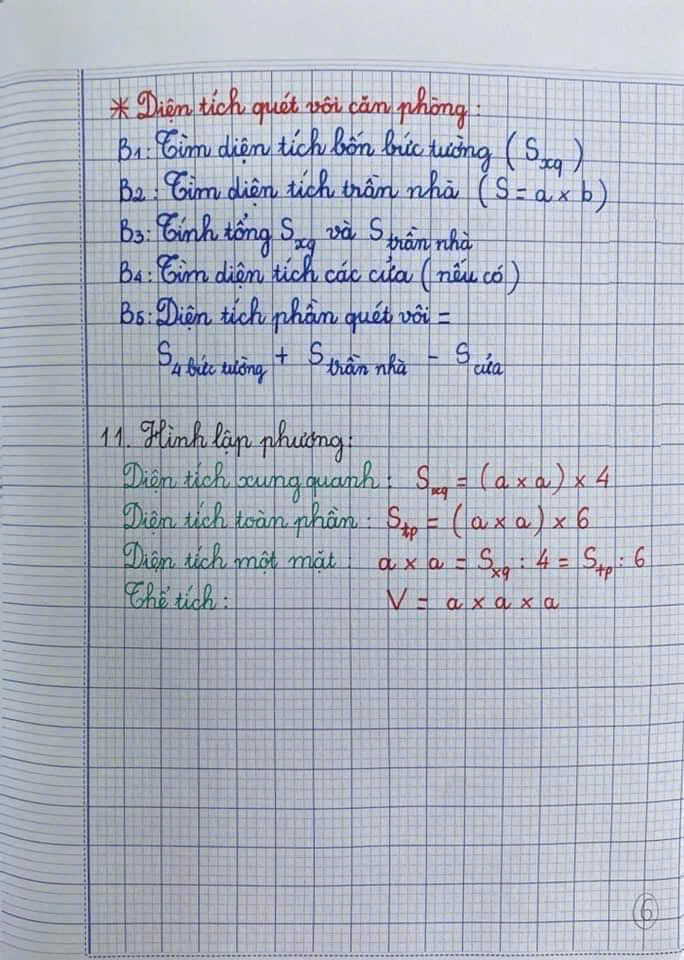 * Diện tích quét vôi căn phòng:
B1: Tìm diện tích bốn bức tường (Sxq)
B2: Tìm diện tích trần nhà (S = a × b)
B3: Tính tổng Sxq và Strần nhà
B4: Tìm diện tích các cửa (nếu có)
B5: Diện tích phần quét vôi =
S4 bức tường + Strần nhà - Scửa
11. Hình lập phương:
Diện tích xung quanh: Sxq = (a × a) × 4
Diện tích toàn phần: Stp = (a × a) × 6
Diện tích một mặt: a × a = Sxq : 4 = Stp : 6
Thể tích: V = a × a × a
6